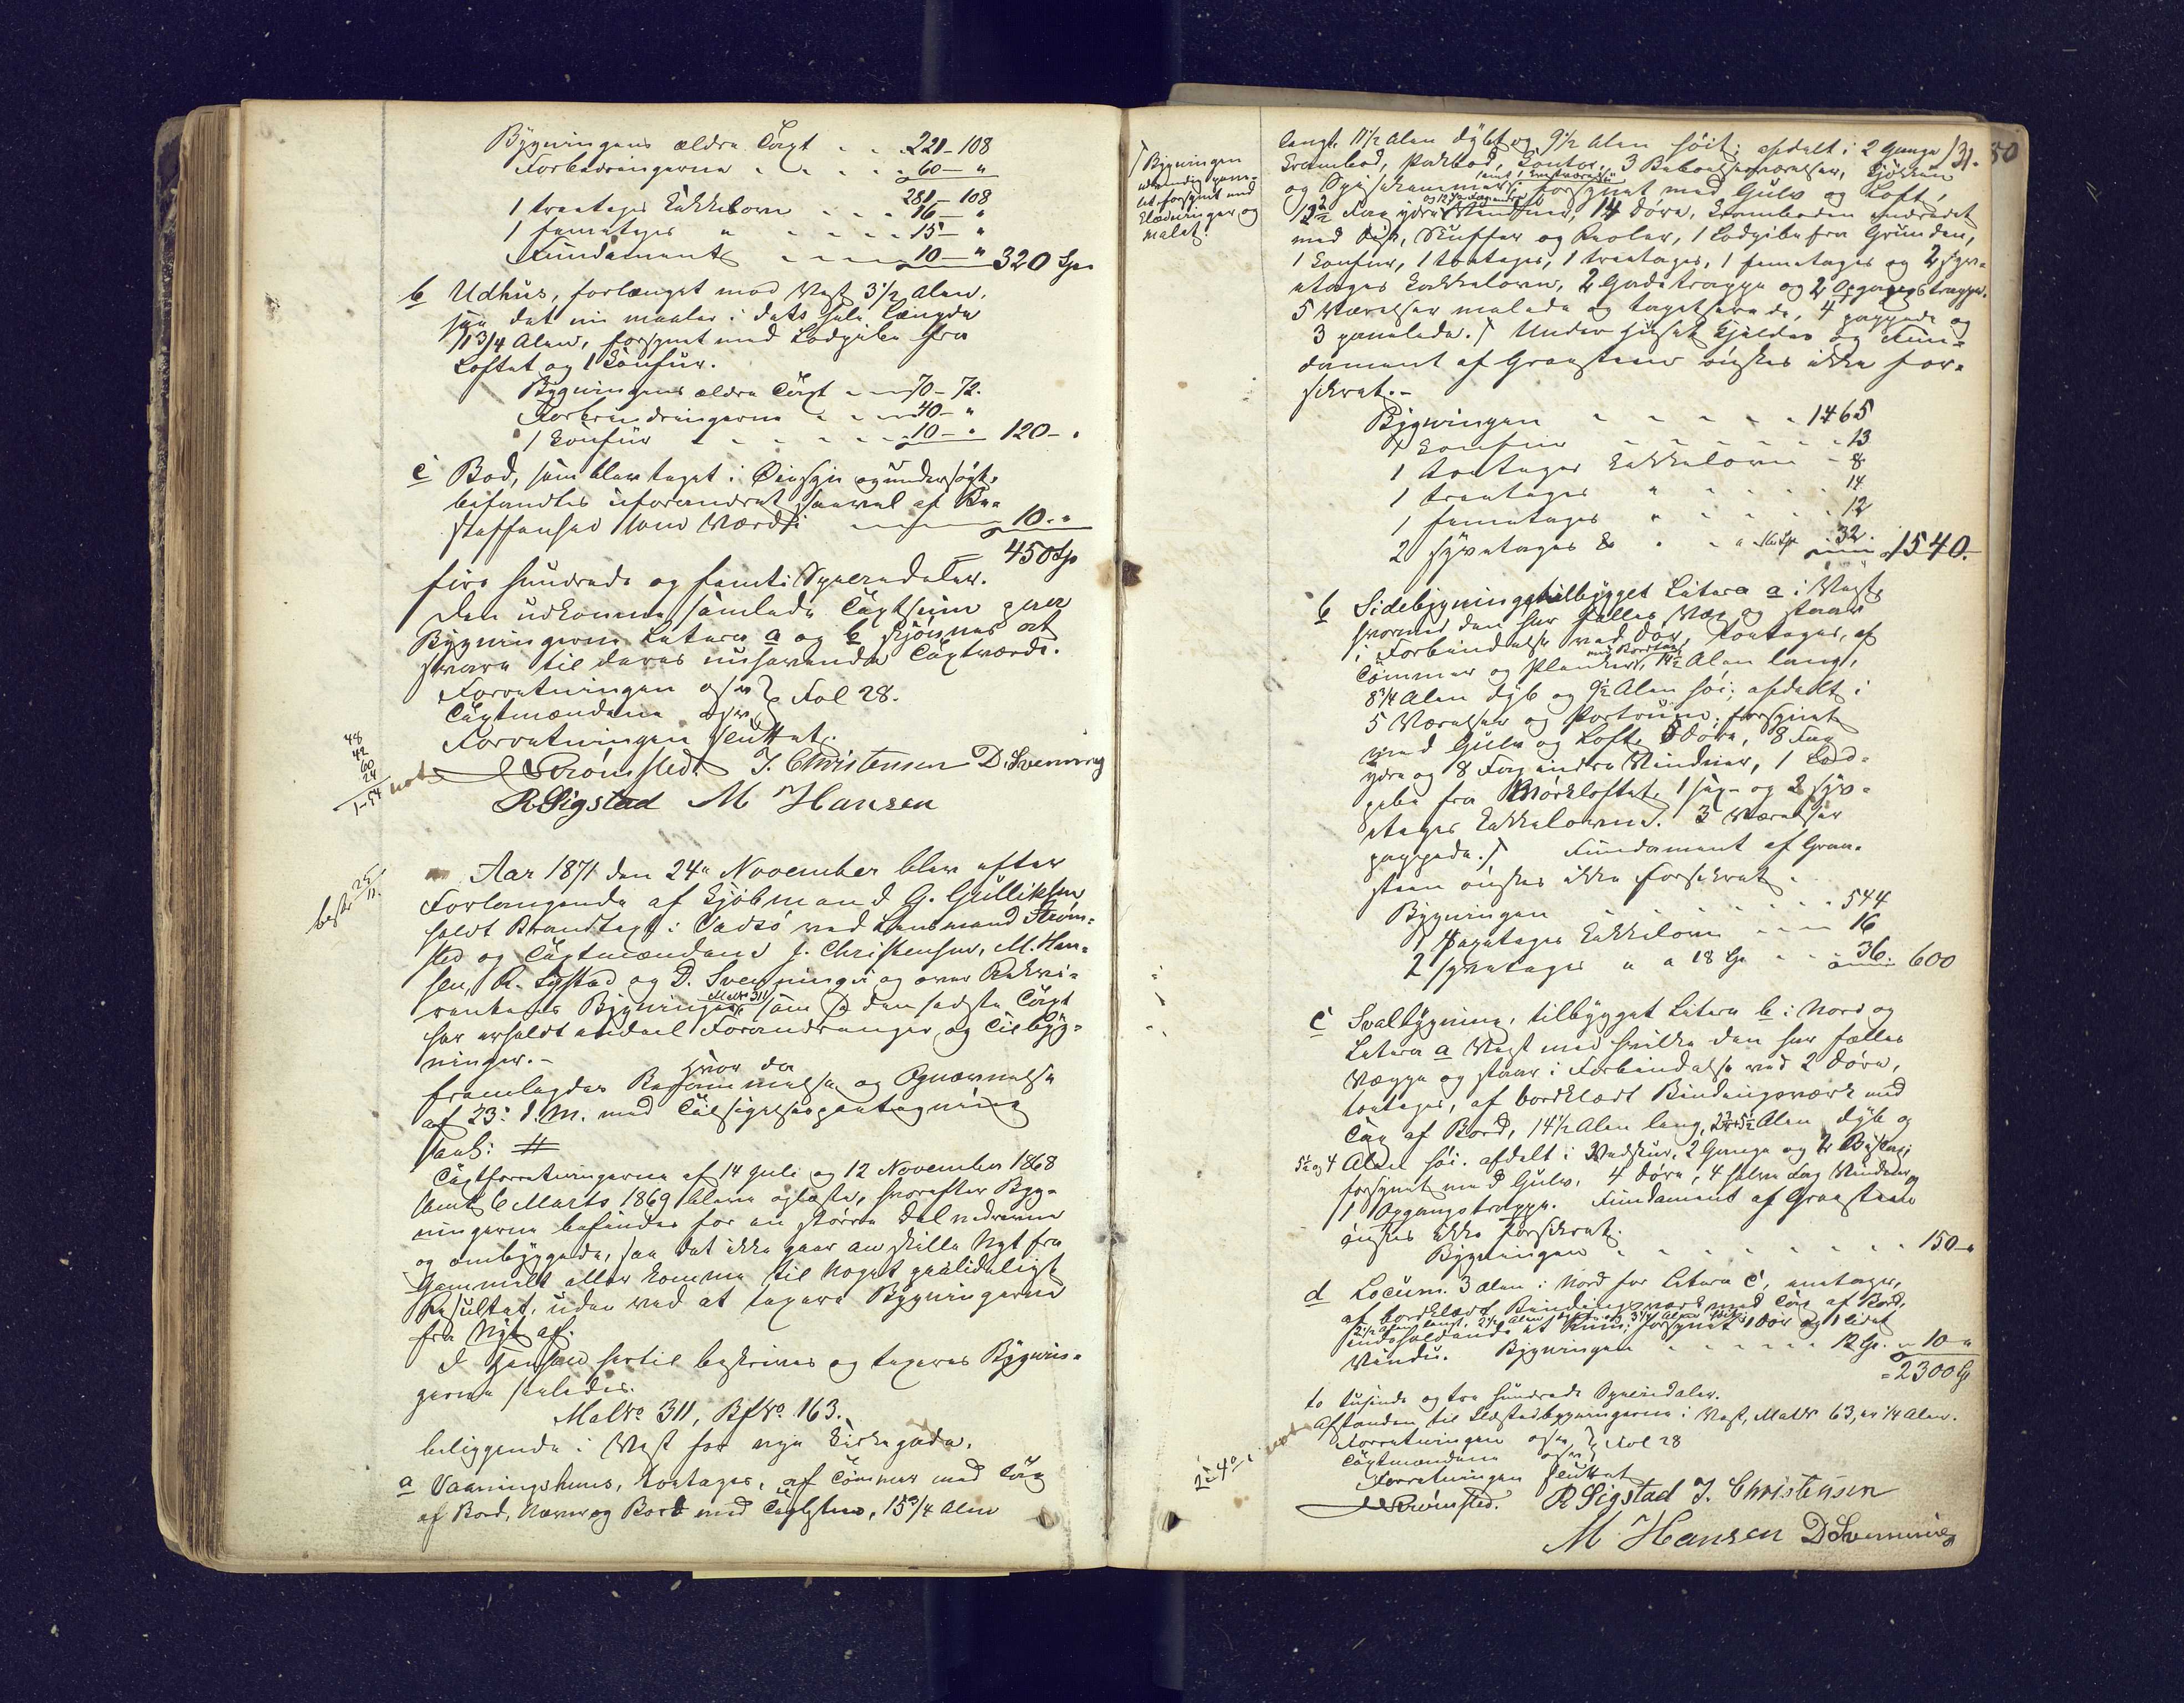 Bygningens ældre Taxt - - 221-108
Forbedringerne - - - 60- "
281-108
1 treetages Kakkelovn - - - 16- "
1 femetages " - - - 15- "
Fundament - - - 10- " 320 Sp.
b Udhus, forlænget mod Vest 3 1/2 Alen,
saa det nu maaler i dets hele Længde
11 3/4 Alen, forsynet med Lodpibe fra
Loftet og 1 Komfur.
Bygningens ældre Taxt - 70-72.
Forandringerne - - 40- "
1 Komfur - - - 10- " 120- "
c Bod, som blev taget i Øiesyn og undersøgt,
befandtes uforandret saavel af Be-
skaffenhed som Værdi - - 10. "
= 450 Sp
fire hundrede og femti Speciedaler.
Den udkomne samlede Taxtsum paa
Bygningerne Litera a og b skjønnes at
svare til deres nuhavende Taxtværdi.
Forretningen oplæst } Fol 28.
Taxtmændene
Forretningen sluttet.
Strømsted. J. Christensen D. Svenning
R Sigstad M Hansen
48
42
60
24
1-54
not
Aar 1871 den 24de November blev efter
Forlangende af Kjøbmand G. Gulliksen
holdt Brandtaxt i Vadsø ved Lensmand Strøm-
sted og Taxtmændene J. Christensen, M. Han-
sen, R. Sigstad og D. Svenning over Rekvi-
rentens Bygninger Matr 311 som fra den sidste Taxt
har erholdt endeel Forandringer og Tilbyg-
ninger.-
Hvor da
fremlagdes Berammelse og Opnævnelse
af 23de d. M. med Tilsigelsespaategning
saal: #
Taxtforretningerne af 14 Juli og 12 November 1868
samt 6 Marts 1869 bleve oplæste, hvorefter Byg-
ningerne befandtes for en større Del nedrevne
og ombyggede, saa det ikke gaar an skille Nyt fra
Gammelt eller komme til noget paalideligt
Resultat, uden ved at taxere Bygningerne
fra Nyt af.
I Henhold hertil beskrives og taxeres Bygnin-
gerne saaledes.
Mat No 311, Bf No 163.
beliggende i Vest for nye Kirkegade.
a Vaaningshuus, toetages, af Tømmer med Tag
af Bord, Næver og Bord med Taglsten, 15 3/4 Alen
besk 25/11
31. 50
/ Bygningen
udvendig pane-
let forsynet med
Klædninger og
malet.
langt, 11 1/2 Alen dybt og 9 1/2 Alen høit; afdelt i 2 Gange
Krambod, Pakbod, Kontor, 3 Beboelsesværelser, Kjøkken
og Spisekammer forsynet med Gulv og Loft,
Fag ydre Vinduer, 14 Døre, Kramboden indredet
med Disk, Skuffer og Reoler, 1 Lodpibe fra Grunden,
1 Komfur, 1 toetages, 1 treetages, 1 femetages og 2 syv-
etages Kakkelovn, 2 Gadetrappe og 2 Opgangstrapper.
5 Værelser malede og tapetserede, 4 pappede og
3 panelede./ Under Huset Kjelder og Fun-
dament af Graasteen ønskes ikke for-
sikret.-
Bygningen - - - - 1465
1 Komfur - - - - 13
1 toetages Kakkelovn - 8
1 treetages " - - 14
1 femetages " - - 12
2 syvetages do - a 16 Sp 32. 1540.-
b Sidebygning tilbygget Litera a i Vest,
hvormed den har fælles Væg og staar
i Forbindelse ved Dør, toetages, af
Tømmer og Planker, med Bordtag, 14 1/2 Alen lang,
8 3/4 Alen dyb og 9 1/2 Alen høi; afdelt i
5 Værelser og Portrum; forsynet
med Gulv og Loft, 8 Døre, 8 Fag
ydre og 8 Fag indre Vinduer, 1 Lod-
pibe fra Mørkloftet, 1 sex- og 2 syv-
etages Kakkelovne. 3 Værelser
pappede./ Fundament af Graa-
steen ønskes ikke forsikret.
Bygningen - - - 544
1 sexetages Kakkelovn - - 16
2 syvetages " a 18 Sp - 36. 600
c Svalbygning, tilbygget Litera b i Nord og
Litera a Vest med hvilke den har fælles
Vægge og staar i Forbindelse ved 2 Døre,
toetages, af bordklædt Bindingsværk med
Tag af Bord, 14 1/2 Alen lang, Alen dyb og
5 1/2 og 4 Alen høi. afdelt i Vedskur, 2 Gange og 2 Bislag;
forsynet med Gulv, 4 Døre, 4 halve Fag Vinduer og
1 Opgangstrappe. Fundament af Graasteen
ønskes ikke forsikret.
Bygningen - - - - 150- "
d Locum. 3 Alen i Nord for Litera c, eenetages,
af bordklædt Bindingsværk med Tag af Bord,
2 1/2 Alen langt, 2 1/2 Alen dybt og 3 1/4 Alen høit;
indeholdende et Rum; forsynet 1 Dør og 1 lidet
Vindu. Bygningen - - - 12 Sp. - 10- "
= 2300 Sp
to tusinde og tre hundrede Speciedaler.
Afstanden til Udstedbygningerne i Vest, MatNr 63, er 1/4 Alen.
Forretningen oplæst } Fol 28
Taxtmændene
Forretningen sluttet
Strømsted. R Sigstad J. Christensen
M. Hansen D Svenning
not